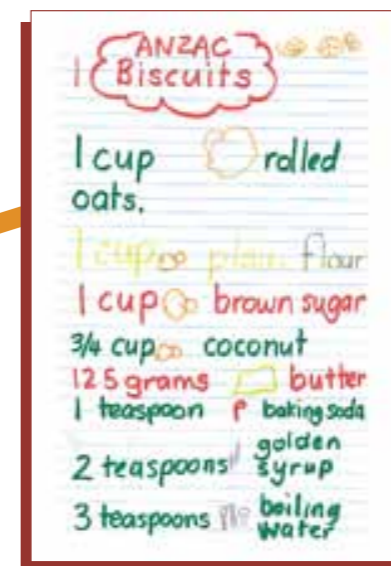 ANZAC
1 Biscuits
1 cup rolled
oats.
1 cup plain flour
1 cup brown sugar
3/4 cup coconut
125 grams butter
1 teaspoon baking soda
2 teaspoons golden syrup
3 teaspoons boiling water